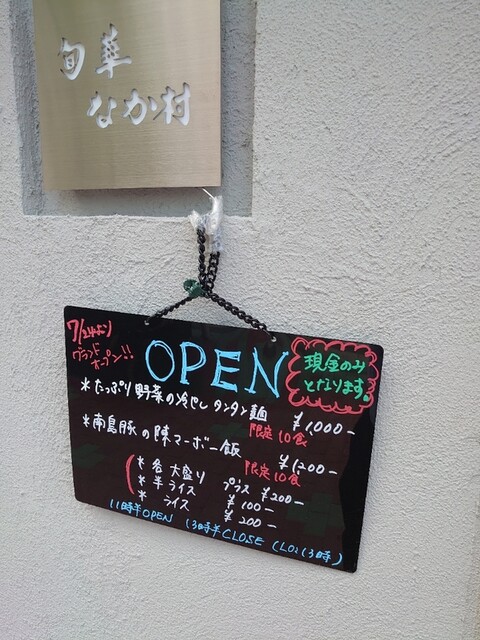 旬華
なか村
7/24より
グランド
オープン!!
OPEN
現金のみ
となります。
＊たっぷり野菜の冷やしタンタン麺 ¥1,000-
限定10食
＊南島豚の陳マーボー飯 ¥1,200-
限定10食
＊各大盛り プラス ¥200-
＊半ライス ¥100-
＊ライス ¥200-
11時半OPEN 13時半CLOSE (LO 13時)